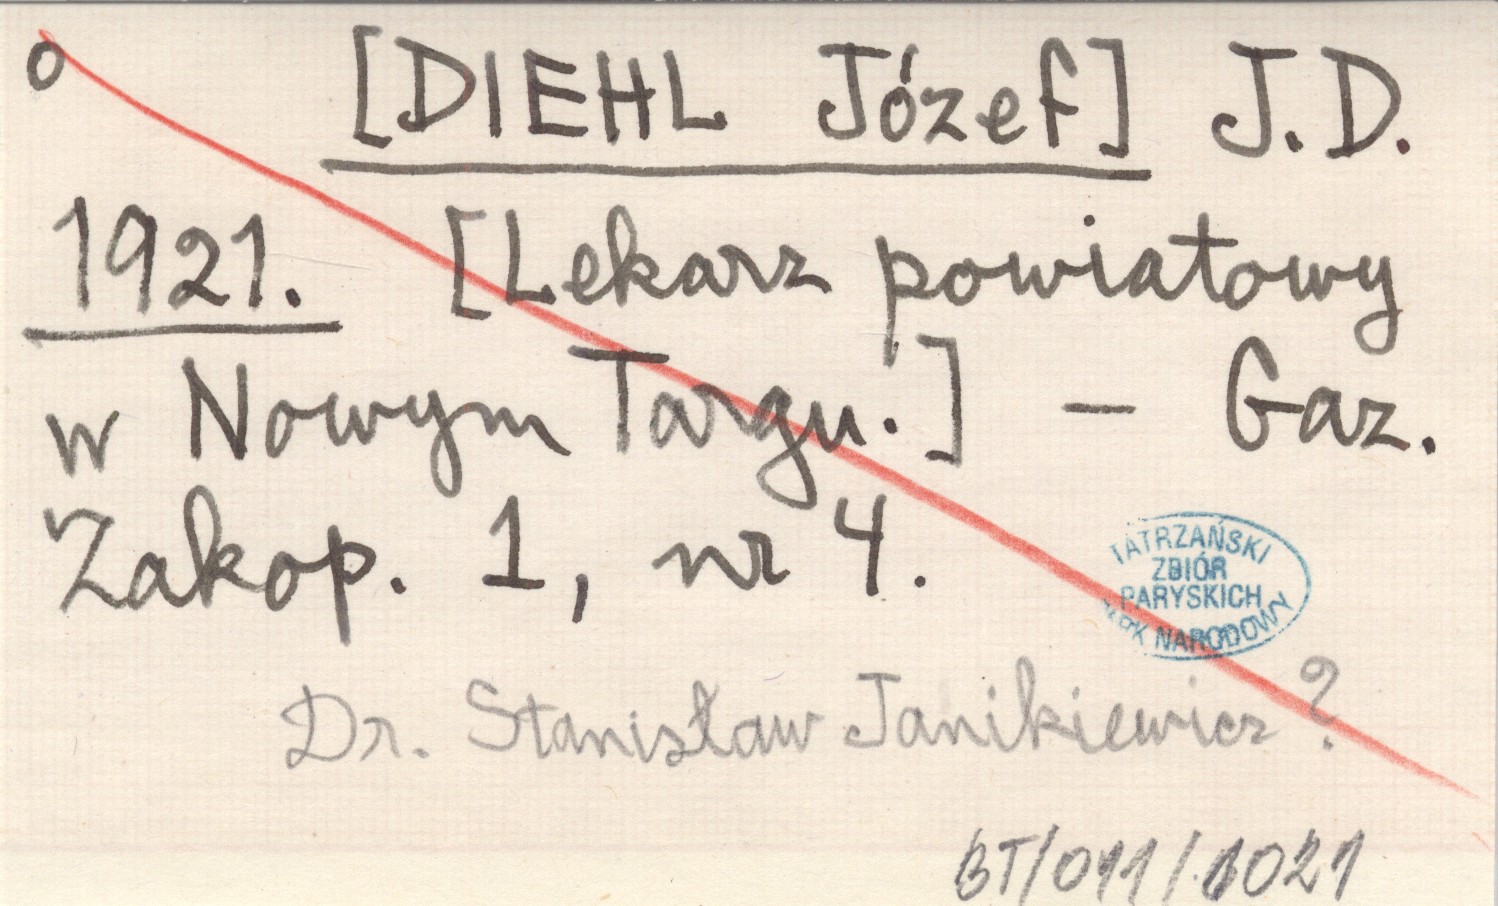 o [DIEHL Józef] J.D.
1921. [Lekarz powiatowy
w Nowym Targu.] – Gaz.
Zakop. 1, nr 4.
TATRZAŃSKI
ZBIÓR
PARYSKICH
PARK NARODOWY
Dr. Stanisław Janikiewicz?
BT/011/1021